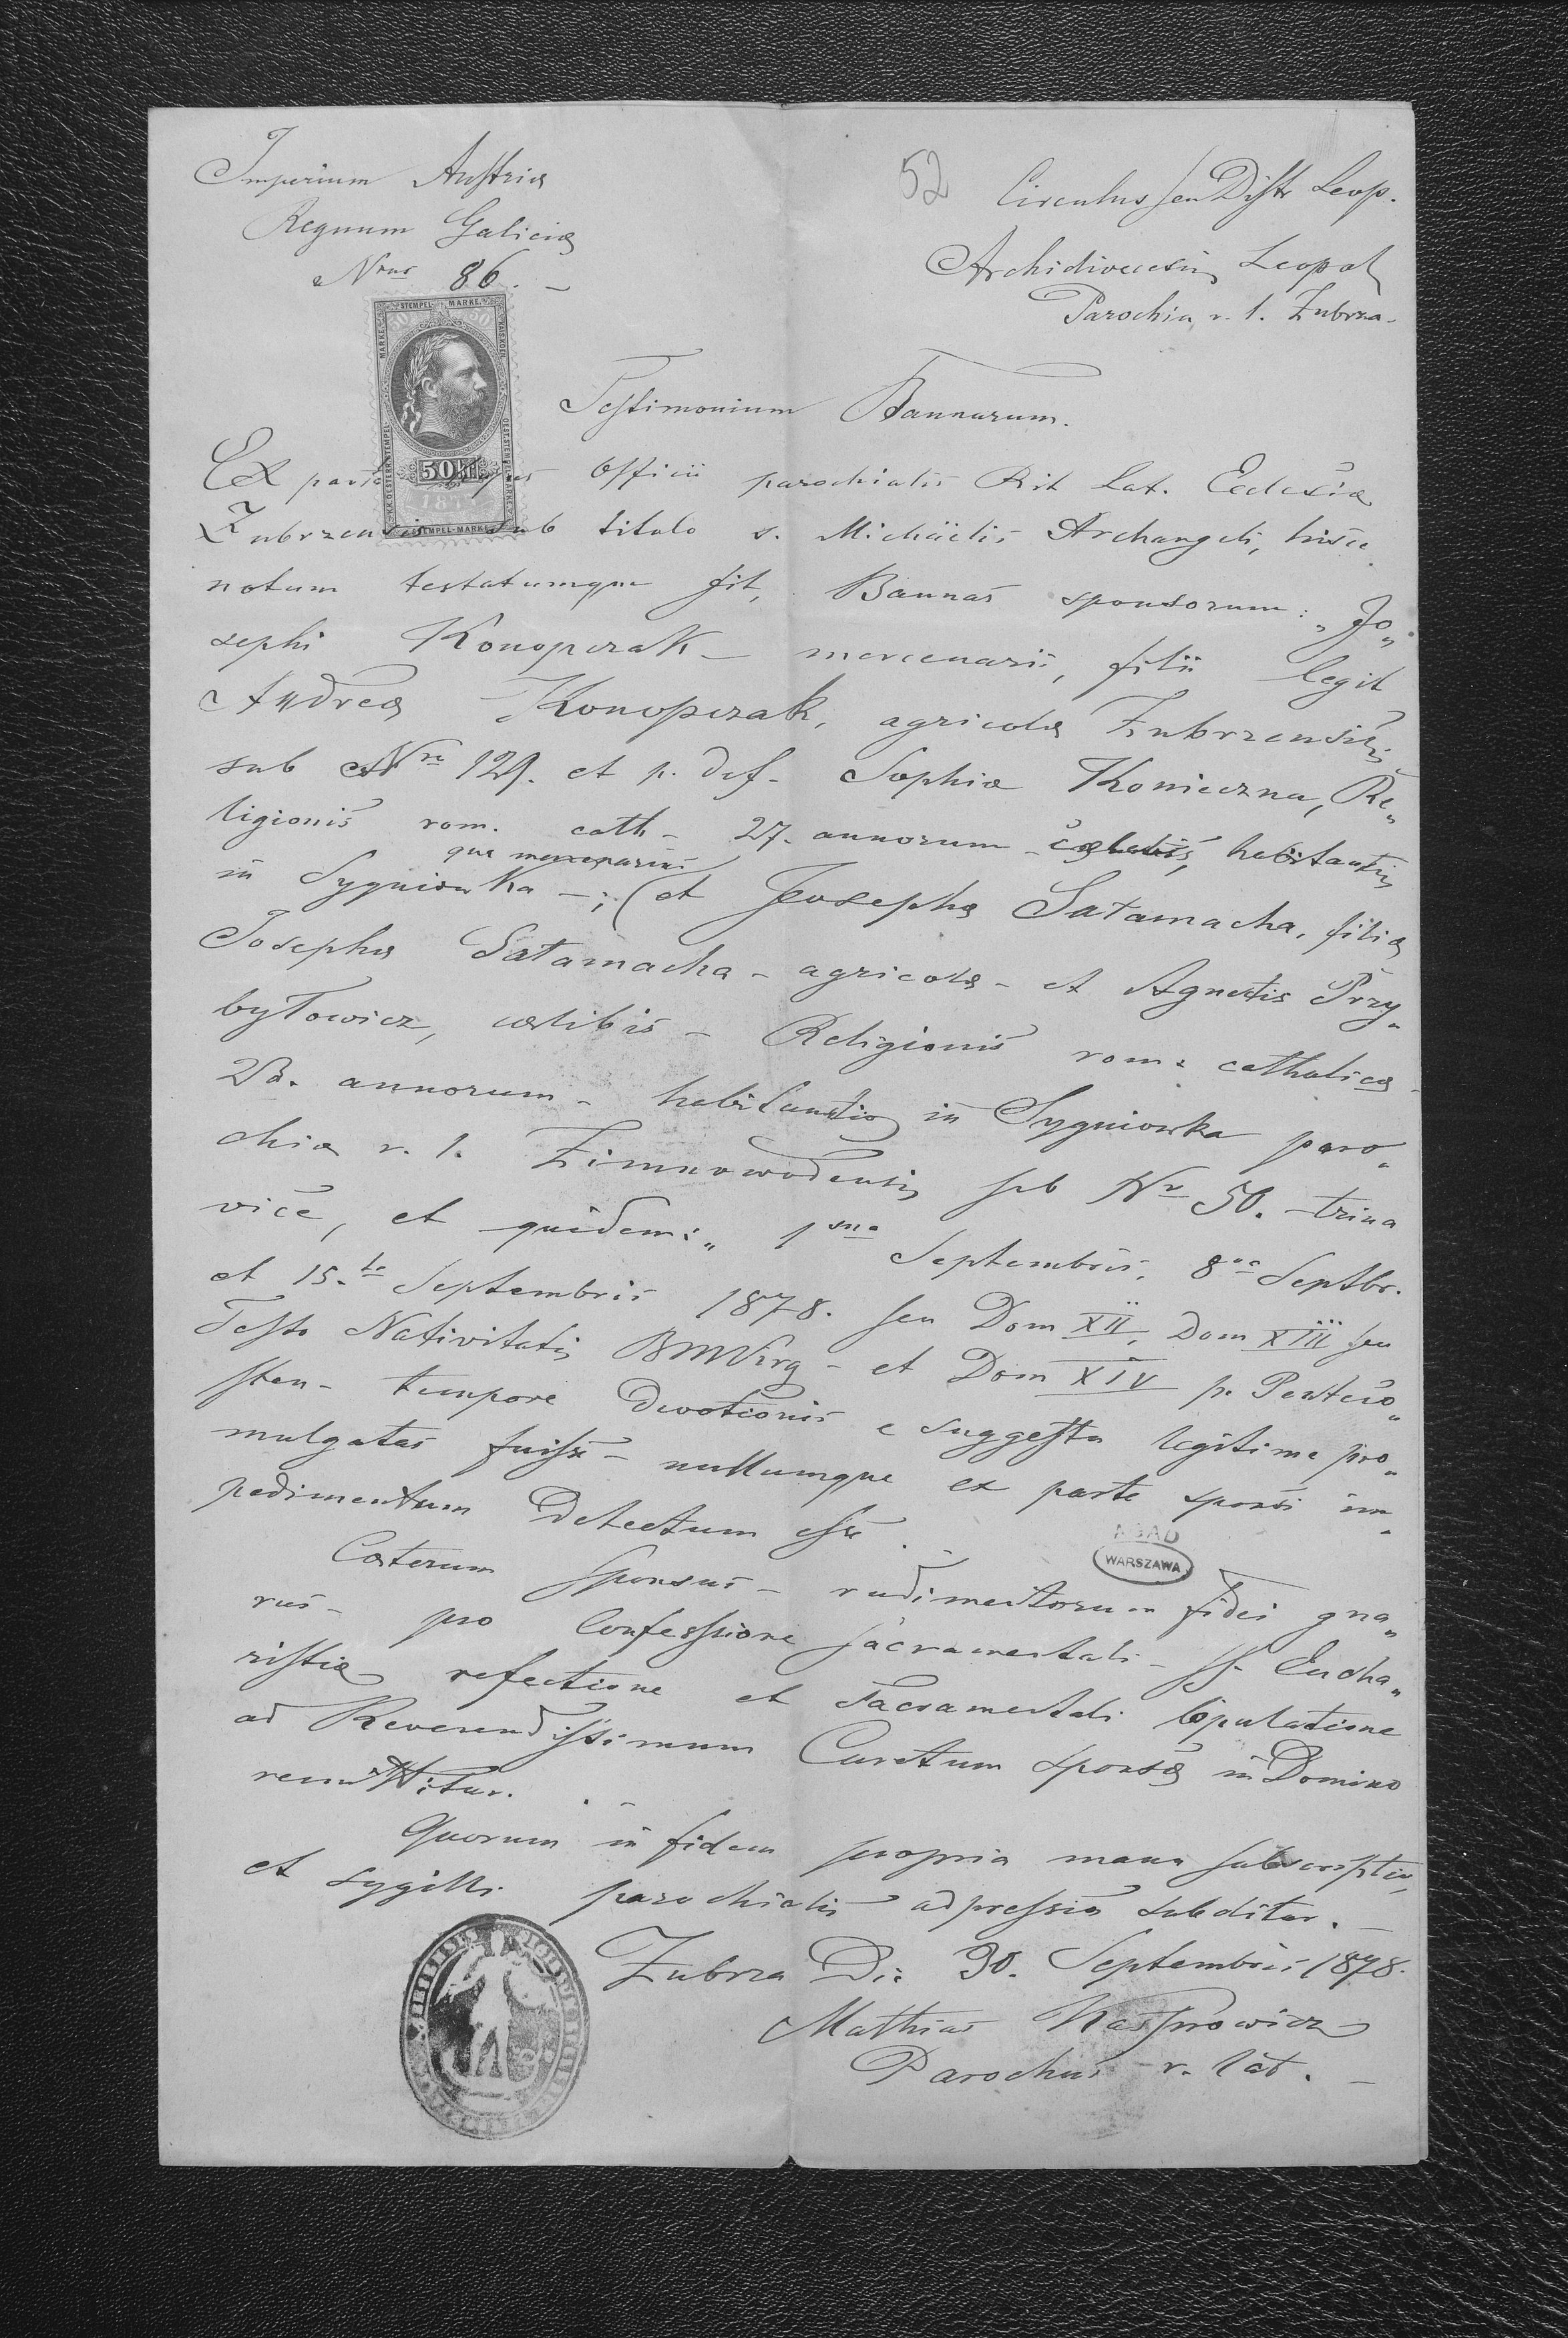 Imperium Austriæ
Regnum Galiciæ
Nrus 86. –
52
Circulus seu Distr Leop.
Archidioecesis Leopol
Parochia r. l. Zubrza.
STEMPEL MARKE
50 Kr
STEMPEL-MARKE
Testimonium Bannorum.
Ex parte Officii parochialis Rit Lat. Ecclesiæ
Zubrzensis sub titulo s. Michäelis Archangeli, hisce
notum testatumque fit, Bannas sponsorum: „Jo„
sephi Konopczak – mercenarii, filii legit
Andreæ Konopczak, agricolæ Zubrzensis,
sub Nro 121. et p. def. Sophiæ Konieczna, Re„
ligionis rom. cath – 27. annorum – habitantis
qua mercenarius
in Sygniowka –; (et Josephæ Sałamacha, filiæ
Josephi Sałamacha – agricolæ – et Agnetis Przy„
byłowicz, cælibis – Religionis rom: catholicæ
28. annorum – habitantis in Sygniowka paro„
chiæ r. l. Zimnowodensis sub Nr 50. – trina
vice, et quidem: „ 1ma Septembris, 8va Septbr.
et 15.ta Septembris 1878. seu Dom XII, Dom XIII seu
Festo Nativitatis BMVirg – et Dom XIV p. Penteco„
sten – tempore Devotionis e suggestu legitime pro„
mulgatas fuisse – nullumque ex parte sponsi im„
pedimentum Detectum esse.
AGAD
WARSZAWA
Cæterum Sponsus – rudimentorum fidei gna„
rus – pro Confessione sacramentali – SS. Eucha„
ristiæ refectione et Sacramentali Copulatione
ad Reverendissimum Curatum sponsæ in Domino
remittitur. . –
Quorum in fidem propria manu subscriptio,
et sygilli parochialis adpressio subditur. –
Zubrza Di: 30. Septembris 1878.
Mathias Kasprowicz
Parochus r. lat. –